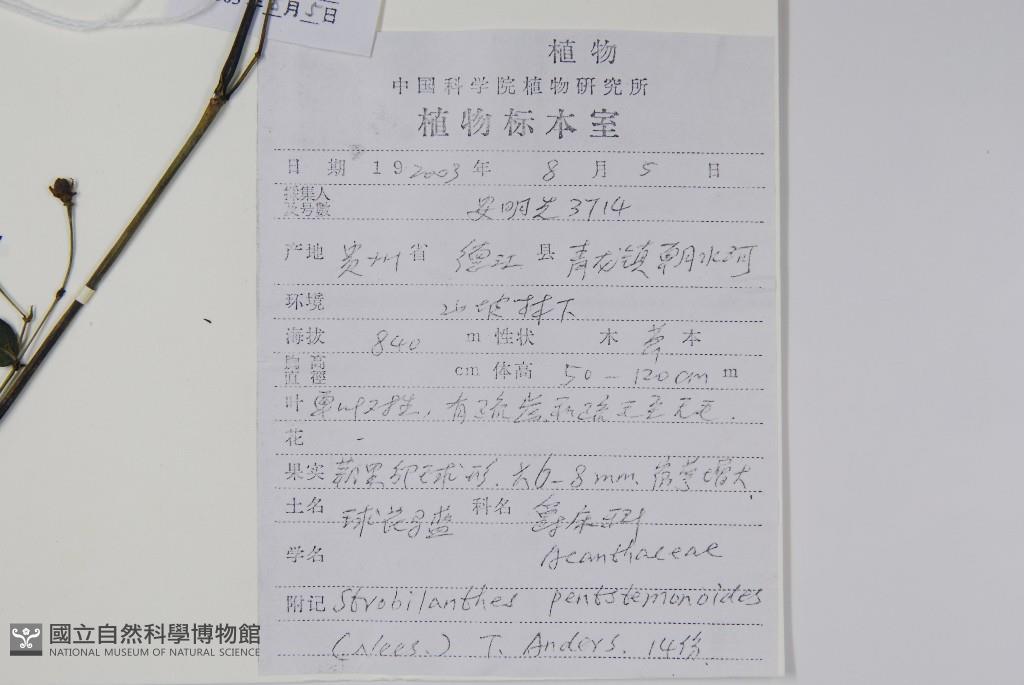 月5日
植物
中国科学院植物研究所
植物标本室
日 期 19 2003 年 8 月 5 日
采集人及号數 安明先 3714
产地 贵州 省 德江 县 青龙镇 朝水河
环境 山坡林下
海拔 840 m 性状 木 草 本
胸高直徑 cm 体高 50-120cm m
叶 单叶对生,有疏齿
花 -
果实 蒴果卵球形,长6-8mm,宿萼增大
土名 球花马蓝 科名 爵床科
学名 Acanthaceae
附记 Strobilanthes pentstemonoides
(Nees.) T. Anders. 14份
國立自然科學博物館
NATIONAL MUSEUM OF NATURAL SCIENCE